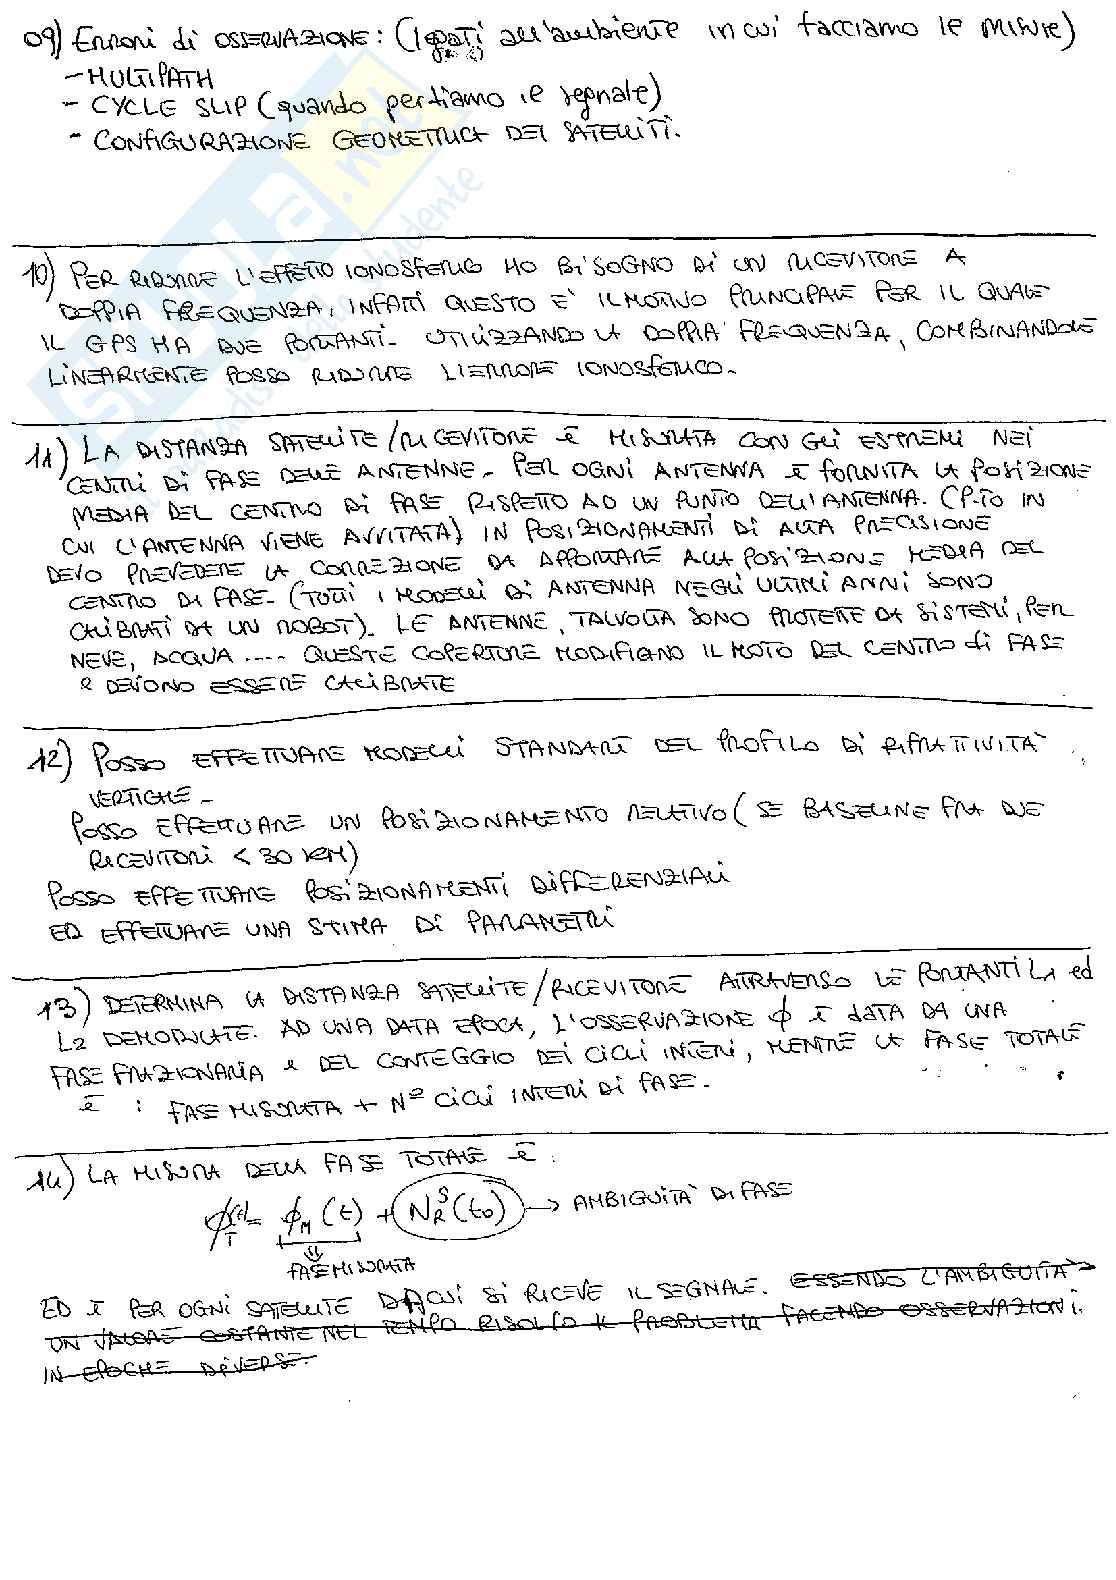 09) Errori di OSSERVAZIONE: (legati all'ambiente in cui facciamo le misure)
- MULTIPATH
- CYCLE SLIP (quando pertiamo il segnale)
- CONFIGURAZIONE GEOMETRICA DEI SATELLITI.
10) PER RIDURRE L'EFFETTO IONOSFERICO HO BISOGNO DI UN RICEVITORE A
DOPPIA FREQUENZA, INFATTI QUESTO E' IL MOTIVO PRINCIPALE PER IL QUALE
IL GPS HA DUE PORTANTI - UTILIZZANDO LA DOPPIA FREQUENZA, COMBINANDOLE
LINEARMENTE POSSO RIDURRE L'ERRORE IONOSFERICO -
11) LA DISTANZA SATELLITE/RICEVITORE È MISURATA CON GLI ESTREMI NEI
CENTRI DI FASE DELLE ANTENNE - PER OGNI ANTENNA È FORNITA LA POSIZIONE
MEDIA DEL CENTRO DI FASE RISPETTO AD UN PUNTO DELL'ANTENNA. (P.TO IN
CUI L'ANTENNA VIENE AVVITATA) IN POSIZIONAMENTI DI ALTA PRECISIONE
DEVO PREVEDERE LA CORREZIONE DA APPORTARE ALLA POSIZIONE MEDIA DEL
CENTRO DI FASE - (TUTTI I MODELLI DI ANTENNA NEGLI ULTIMI ANNI SONO
CALIBRATI DA UN ROBOT). LE ANTENNE, TALVOLTA SONO PROTETTE DA SISTEMI, PER
NEVE, ACQUA .... QUESTE COPERTURE MODIFICANO IL MOTO DEL CENTRO di FASE
e DEVONO ESSERE CALIBRATE
12) POSSO EFFETTUARE MODELLI STANDART DEL PROFILO DI RIFRATTIVITÀ
VERTICALE -
POSSO EFFETTUARE UN POSIZIONAMENTO RELATIVO (SE BASELINE FRA DUE
RICEVITORI < 30 KM)
POSSO EFFETTUARE POSIZIONAMENTI DIFFERENZIALI
ED EFFETTUARE UNA STIMA DI PARAMETRI
13) DETERMINA LA DISTANZA SATELLITE/RICEVITORE ATTRAVERSO LE PORTANTI L1 ed
L2 DEMODULATE. AD UNA DATA EPOCA, L'OSSERVAZIONE ϕ È DATA DA UNA
FASE FRAZIONARIA e DEL CONTEGGIO DEI CICLI INTERI, MENTRE LA FASE TOTALE
È : FASE MISURATA + Nº CICLI INTERI DI FASE.
14) LA MISURA DELLA FASE TOTALE È:
ϕ_T(t) = ϕ_M(t) + N_R^S(t_0) → AMBIGUITÀ DI FASE
FASE MISURATA
ED È PER OGNI SATELLITE DA CUI SI RICEVE IL SEGNALE. ESSENDO L'AMBIGUITÀ
UN VALORE COSTANTE NEL TEMPO RISOLVO IL PROBLEMA FACENDO OSSERVAZIONI
IN EPOCHE DIVERSE.